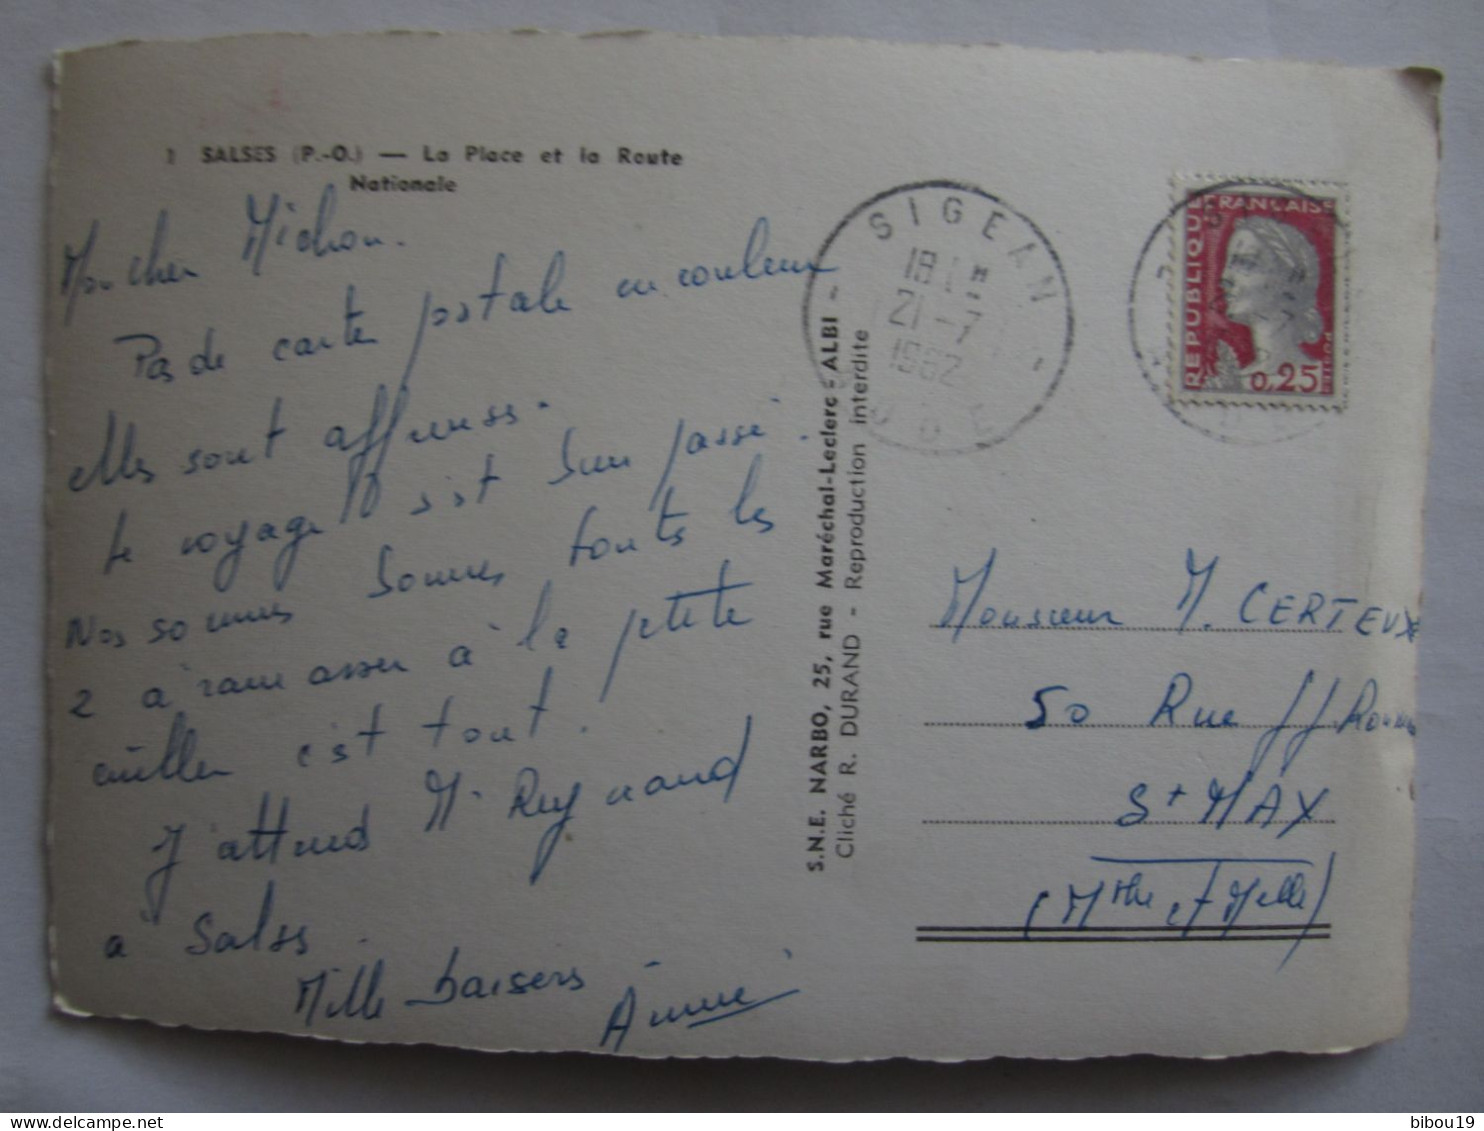 1 SALSES (P.-O.) — La Place et la Route
Nationale
Mon cher Michou.
Pas de carte postale en couleur
elles sont affreuses.
Le voyage s'est bien passé.
Nous sommes toutes les
2 à ramasser à la petite
cuiller c'est tout.
J'attends Mr Reynaud
à Salses
Mille baisers
S.N.E. NARBO, 25, rue Maréchal-Leclerc - ALBI -
Cliché R. DURAND - Reproduction interdite
SIGEAN
18 H
21-7
1962
AUDE
RÉPUBLIQUE FRANÇAISE
POSTES
0,25
Monsieur M. CERTEUX
50 Rue JJ
St MAX
(Mthe et Melle)
bibou19